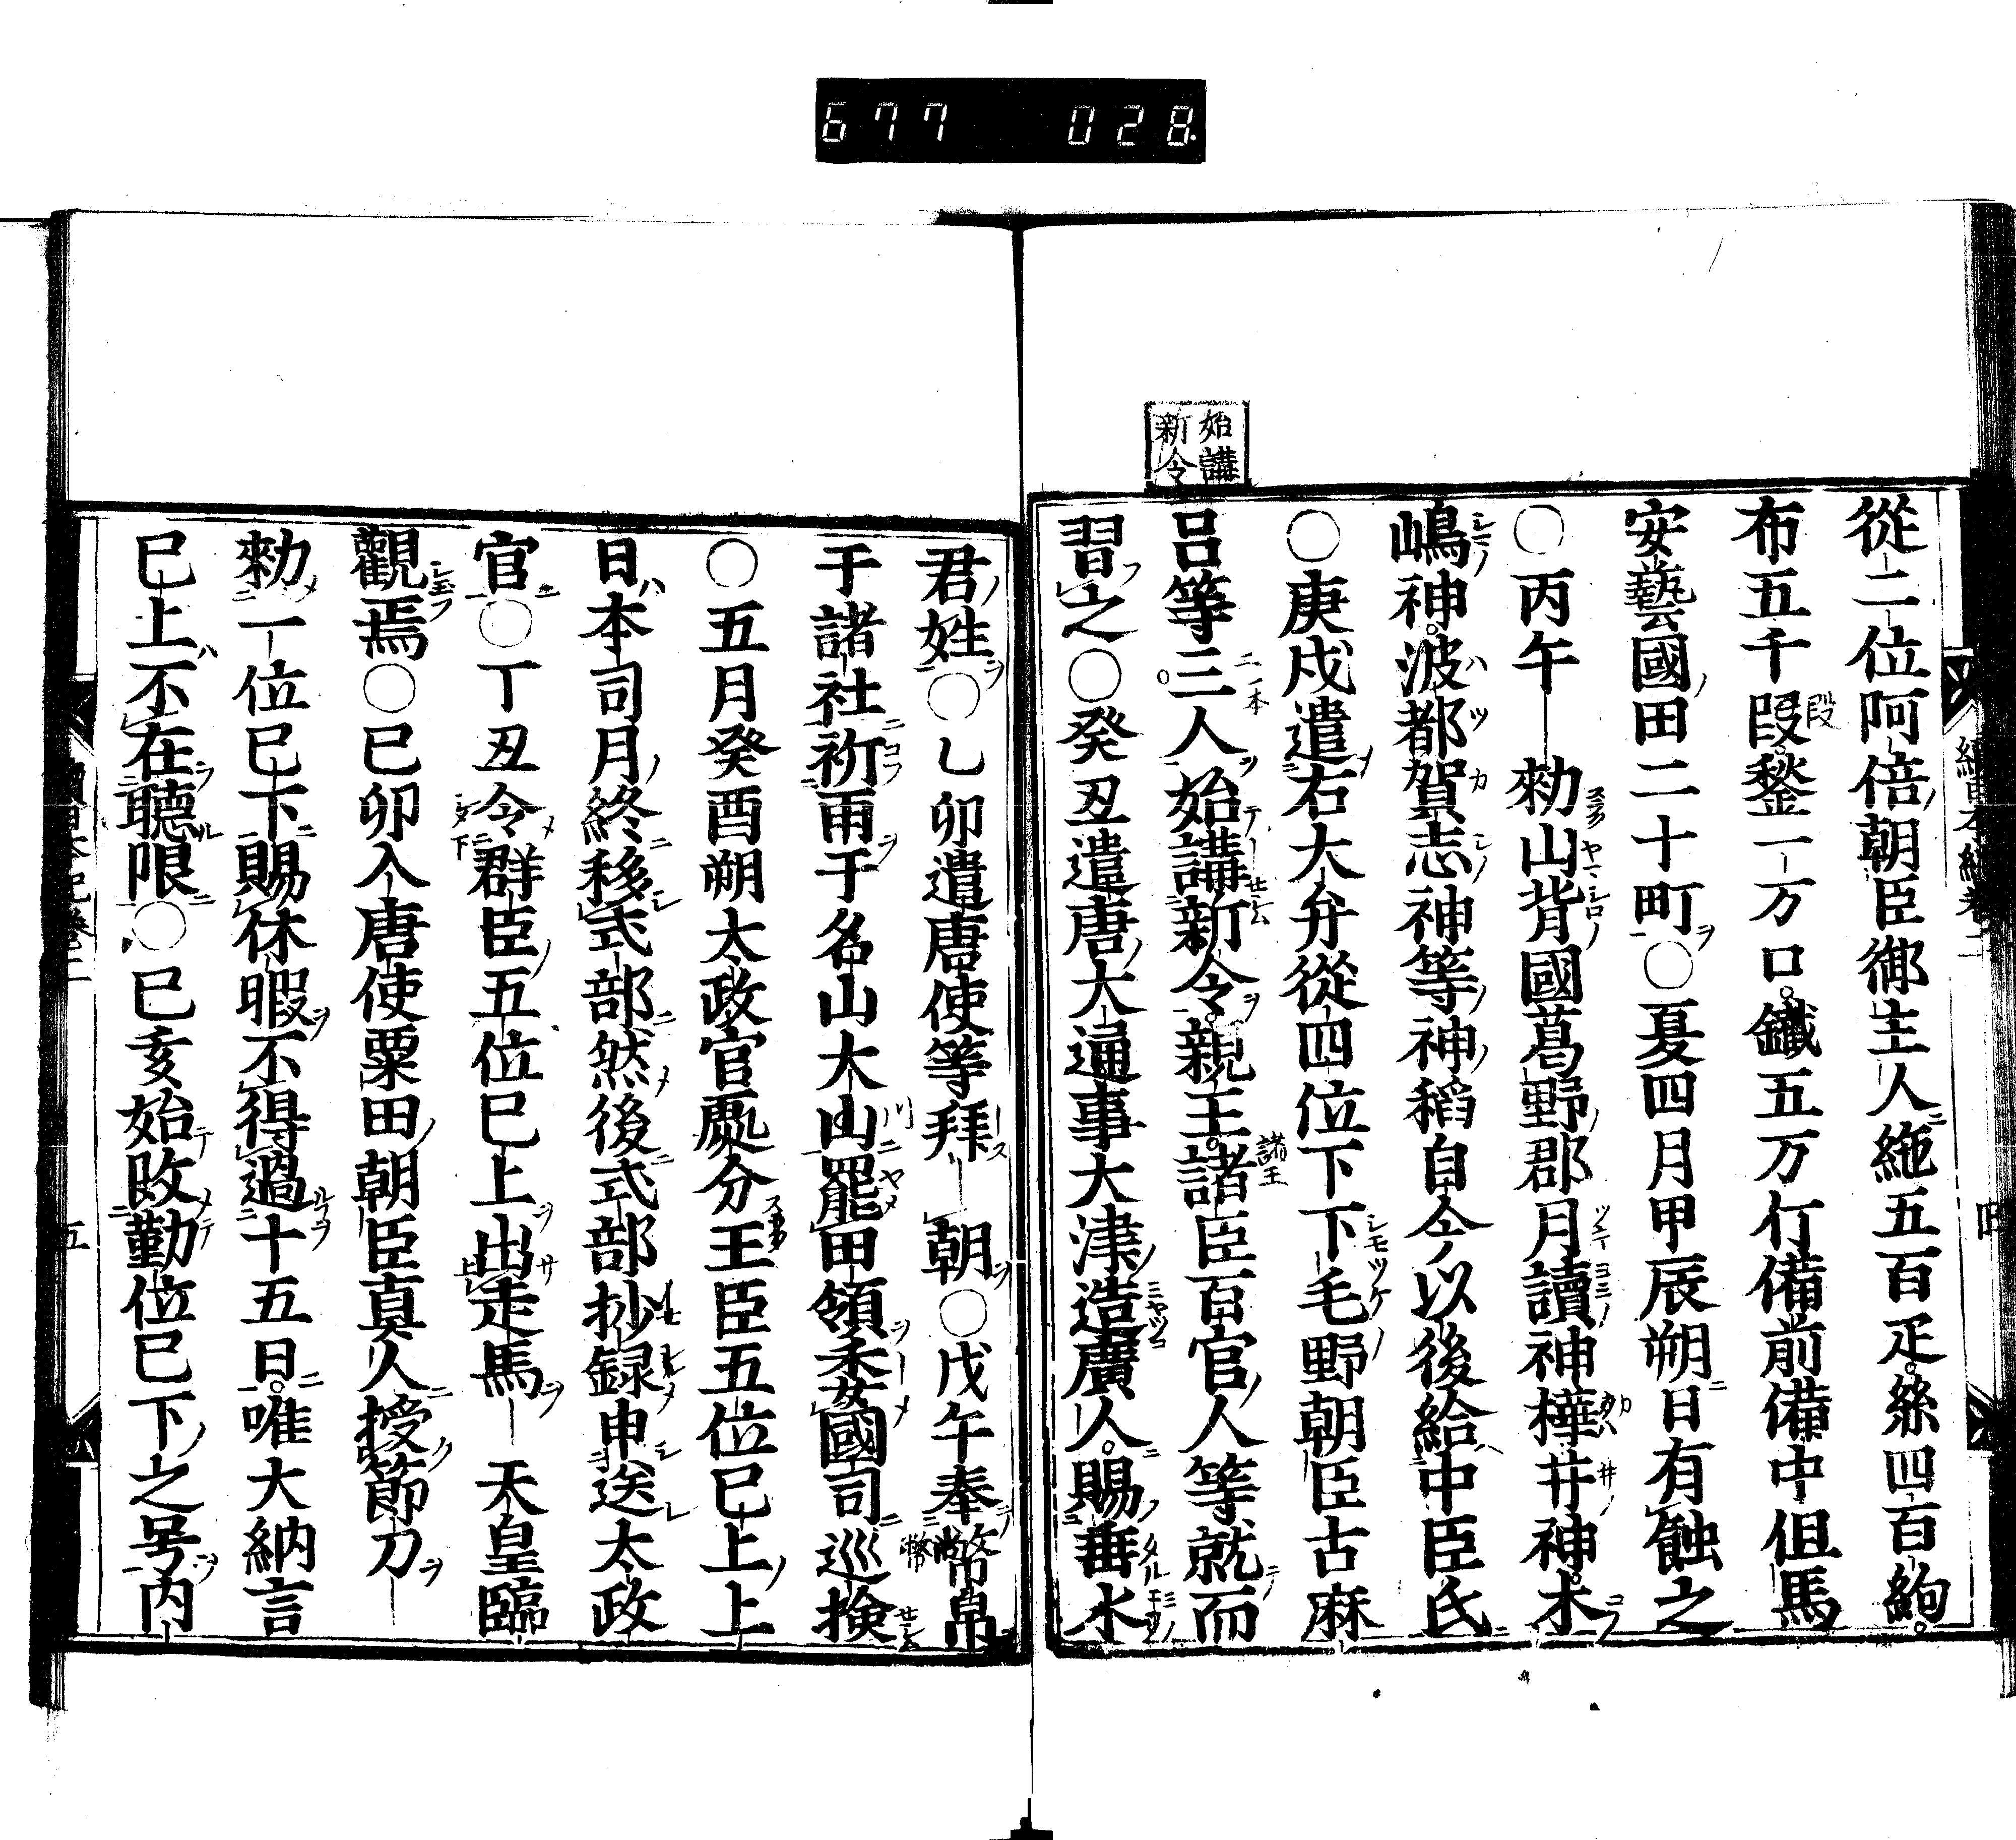 677 028
始講
新令
從二位阿倍朝臣御主人絁五百疋。絲四百絇。
布五千段。鍫一万口。鐵五万斤備前備中但馬
安藝國田二十町○夏四月甲辰朔日有蝕之
○丙午勅山背國葛野郡月讀神樺井神。木
嶋神。波都賀志神等神稻自今以後給中臣氏
○庚戌遣右大弁從四位下下毛野朝臣古麻
呂等三人始講新令。親王。諸臣百官人等就而
習之○癸丑遣唐大通事大津造廣人。賜垂水
君姓○乙卯遣唐使等拜朝○戊午奉幣帛
于諸社祈雨于名山大山罷田領委國司巡検
○五月癸酉朔太政官處分王臣五位已上上
日本司月終移式部然後式部抄録申送太政
官○丁丑令群臣五位已上出走馬天皇臨
觀焉○己卯入唐使粟田朝臣真人授節刀
勅一位已下賜休暇不得過十五日。唯大納言
已上不在聴限○己亥始改勤位已下之号内
五